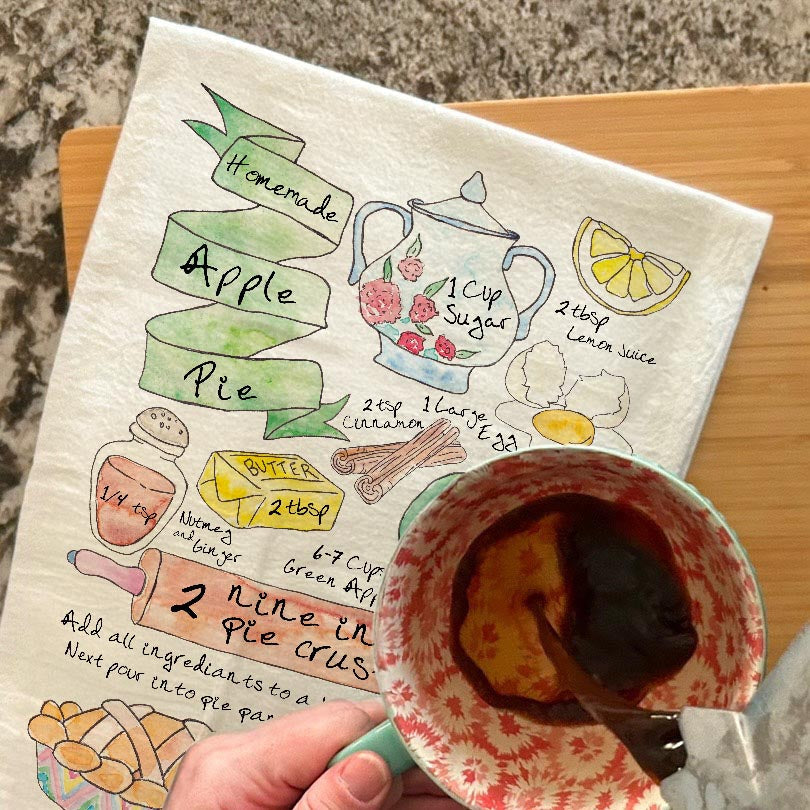 Homemade
Apple
Pie
1 Cup
Sugar
2 tbsp
Lemon Juice
2 tsp
Cinnamon
1 Large
Egg
1/4 tsp
Nutmeg
and Ginger
BUTTER
2 tbsp
6-7 Cups
Green App
2 nine in
Pie crus
Add all ingrediants to a
Next pour into pie pan